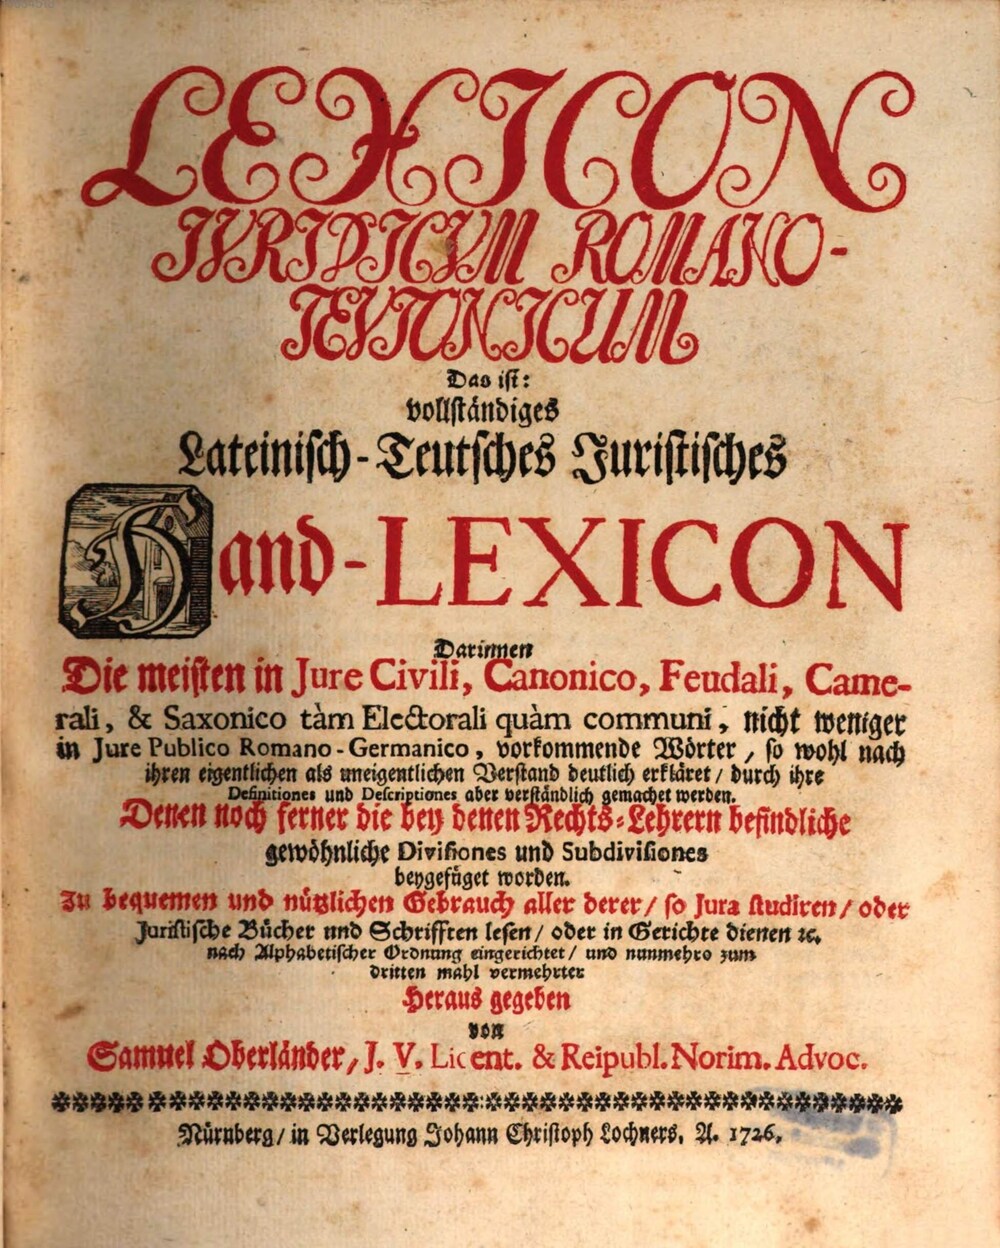 LEXICON
IVRIDICVM ROMANO-
TEVTONICUM
Das ist:
vollständiges
Lateinisch-Teutsches Juristisches
Hand-LEXICON
Darinnen
Die meisten in Jure Civili, Canonico, Feudali, Came-
rali, & Saxonico tàm Electorali quàm communi, nicht weniger
in Jure Publico Romano-Germanico, vorkommende Wörter/ so wohl nach
ihren eigentlichen als uneigentlichen Verstand deutlich erkläret/ durch ihre
Definitiones und Descriptiones aber verständlich gemachet werden.
Denen noch ferner die bey denen Rechts-Lehrern befindliche
gewöhnliche Divisiones und Subdivisiones
beygefüget worden.
Zu bequemen und nützlichen Gebrauch aller derer/ so Jura studiren/ oder
Juristische Bücher und Schrifften lesen/ oder in Gerichte dienen ꝛc.
nach Alphabetischer Ordnung eingerichtet/ und nunmehro zum
dritten mahl vermehrter
Heraus gegeben
von
Samuel Oberländer, J. V. Licent. & Reipubl. Norim. Advoc.
Nürnberg/ in Verlegung Johann Christoph Lochners, A. 1726.